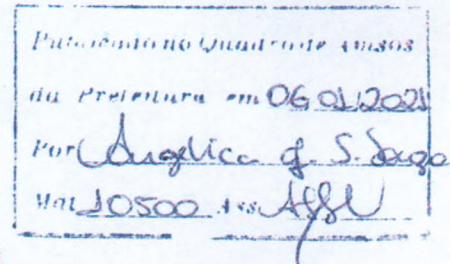 Publicado no Quadro de Avisos
da Prefeitura em 06 01 2021
Por Angélica S.
Mat 10500 Ass